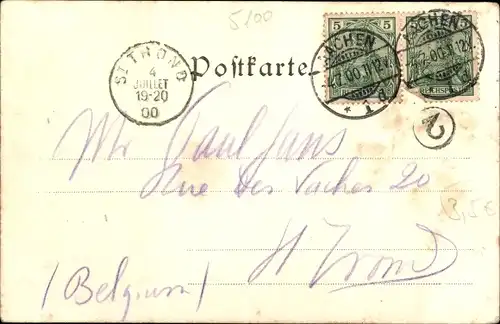 5100
5 5
AACHEN
AACHEN
7.00.11-12V.
7.00.11-12V.
* 1 d
REICHSPOST
ST TROND
4
JUILLET
19-20
00
Postkarte.
2
Mr Paul Jans
Rue des Vaches 20
3,5€
St Trond
(Belgium)